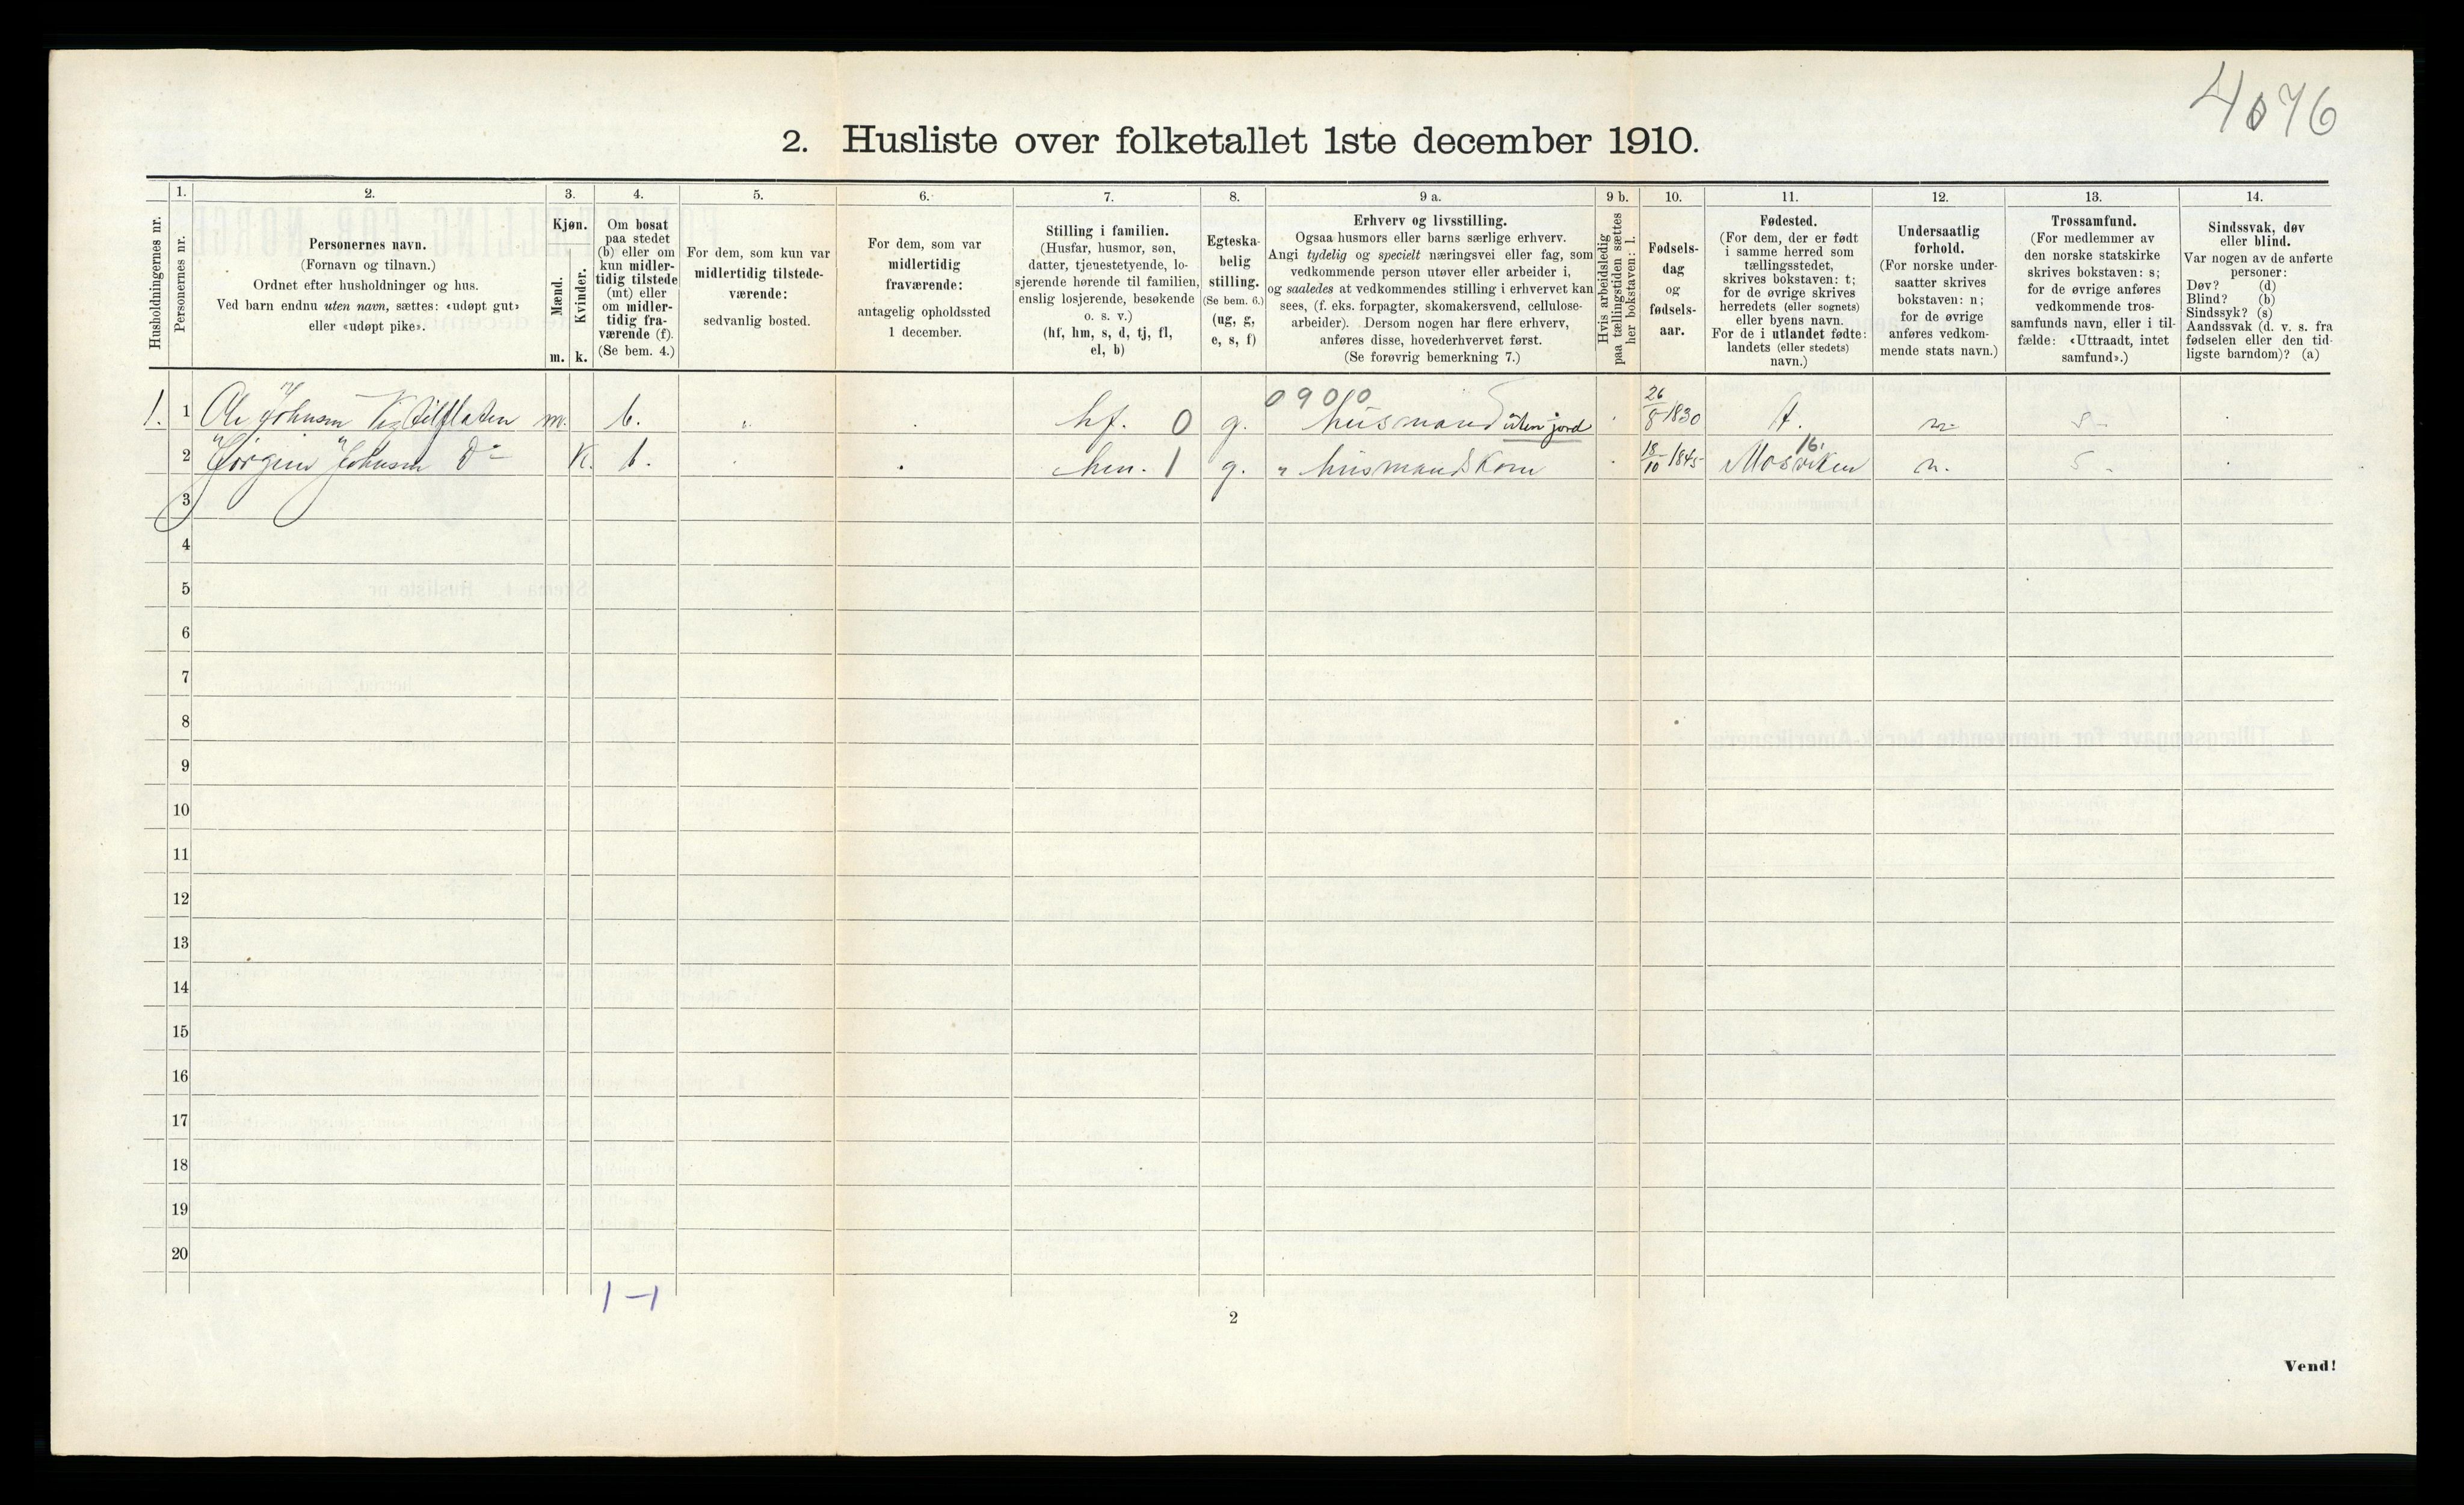 4076
2. Husliste over folketallet 1ste december 1910.
Husholdningernes nr.
1.
Personernes nr.
2.
Personernes navn.
(Fornavn og tilnavn.)
Ordnet efter husholdninger og hus.
Ved barn endnu uten navn, sættes: «udøpt gut»
eller «udøpt pike».
3.
Kjøn.
Mænd.
Kvinder.
m. k.
4.
Om bosat
paa stedet
(b) eller om
kun midler-
tidig tilstede
(mt) eller
om midler-
tidig fra-
værende (f).
(Se bem. 4.)
5.
For dem, som kun var
midlertidig tilstede-
værende:
sedvanlig bosted.
6.
For dem, som var
midlertidig
fraværende:
antagelig opholdssted
1 december.
7.
Stilling i familien.
(Husfar, husmor, søn,
datter, tjenestetyende, lo-
sjerende hørende til familien,
enslig losjerende, besøkende
o. s. v.)
(hf, hm, s, d, tj, fl,
el, b)
8.
Egteska-
belig
stilling.
(Se bem. 6.)
(ug, g,
e, s, f)
9 a.
Erhverv og livsstilling.
Ogsaa husmors eller barns særlige erhverv.
Angi tydelig og specielt næringsvei eller fag, som
vedkommende person utøver eller arbeider i,
og saaledes at vedkommendes stilling i erhvervet kan
sees, (f. eks. forpagter, skomakersvend, cellulose-
arbeider). Dersom nogen har flere erhverv,
anføres disse, hovederhvervet først.
(Se forøvrig bemerkning 7.)
9 b.
Hvis arbeidsledig
paa tællingstiden sættes
her bokstaven: l.
10.
Fødsels-
dag
og
fødsels-
aar.
11.
Fødested.
(For dem, der er født
i samme herred som
tællingsstedet,
skrives bokstaven: t;
for de øvrige skrives
herredets (eller sognets)
eller byens navn.
For de i utlandet fødte:
landets (eller stedets)
navn.)
12.
Undersaatlig
forhold.
(For norske under-
saatter skrives
bokstaven: n;
for de øvrige
anføres vedkom-
mende stats navn.)
13.
Trossamfund.
(For medlemmer av
den norske statskirke
skrives bokstaven: s;
for de øvrige anføres
vedkommende tros-
samfunds navn, eller i til-
fælde: «Uttraadt, intet
samfund».)
14.
Sindssvak, døv
eller blind.
Var nogen av de anførte
personer:
Døv? (d)
Blind? (b)
Sindssyk? (s)
Aandssvak (d. v. s. fra
fødselen eller den tid-
ligste barndom)? (a)
09010
1. 1 Ole Johnsen m. b. hf. 0 g. husmand uten jord 26/8-1830 t. n. s.
16
2 Jørgine Johnsen Do K. b. hm. 1 g. " husmandskone 18/10-1845 Mosviken n. s.
3
4
5
6
7
8
9
10
11
12
13
14
15
16
17
18
19
20
1-1
2
Vend!